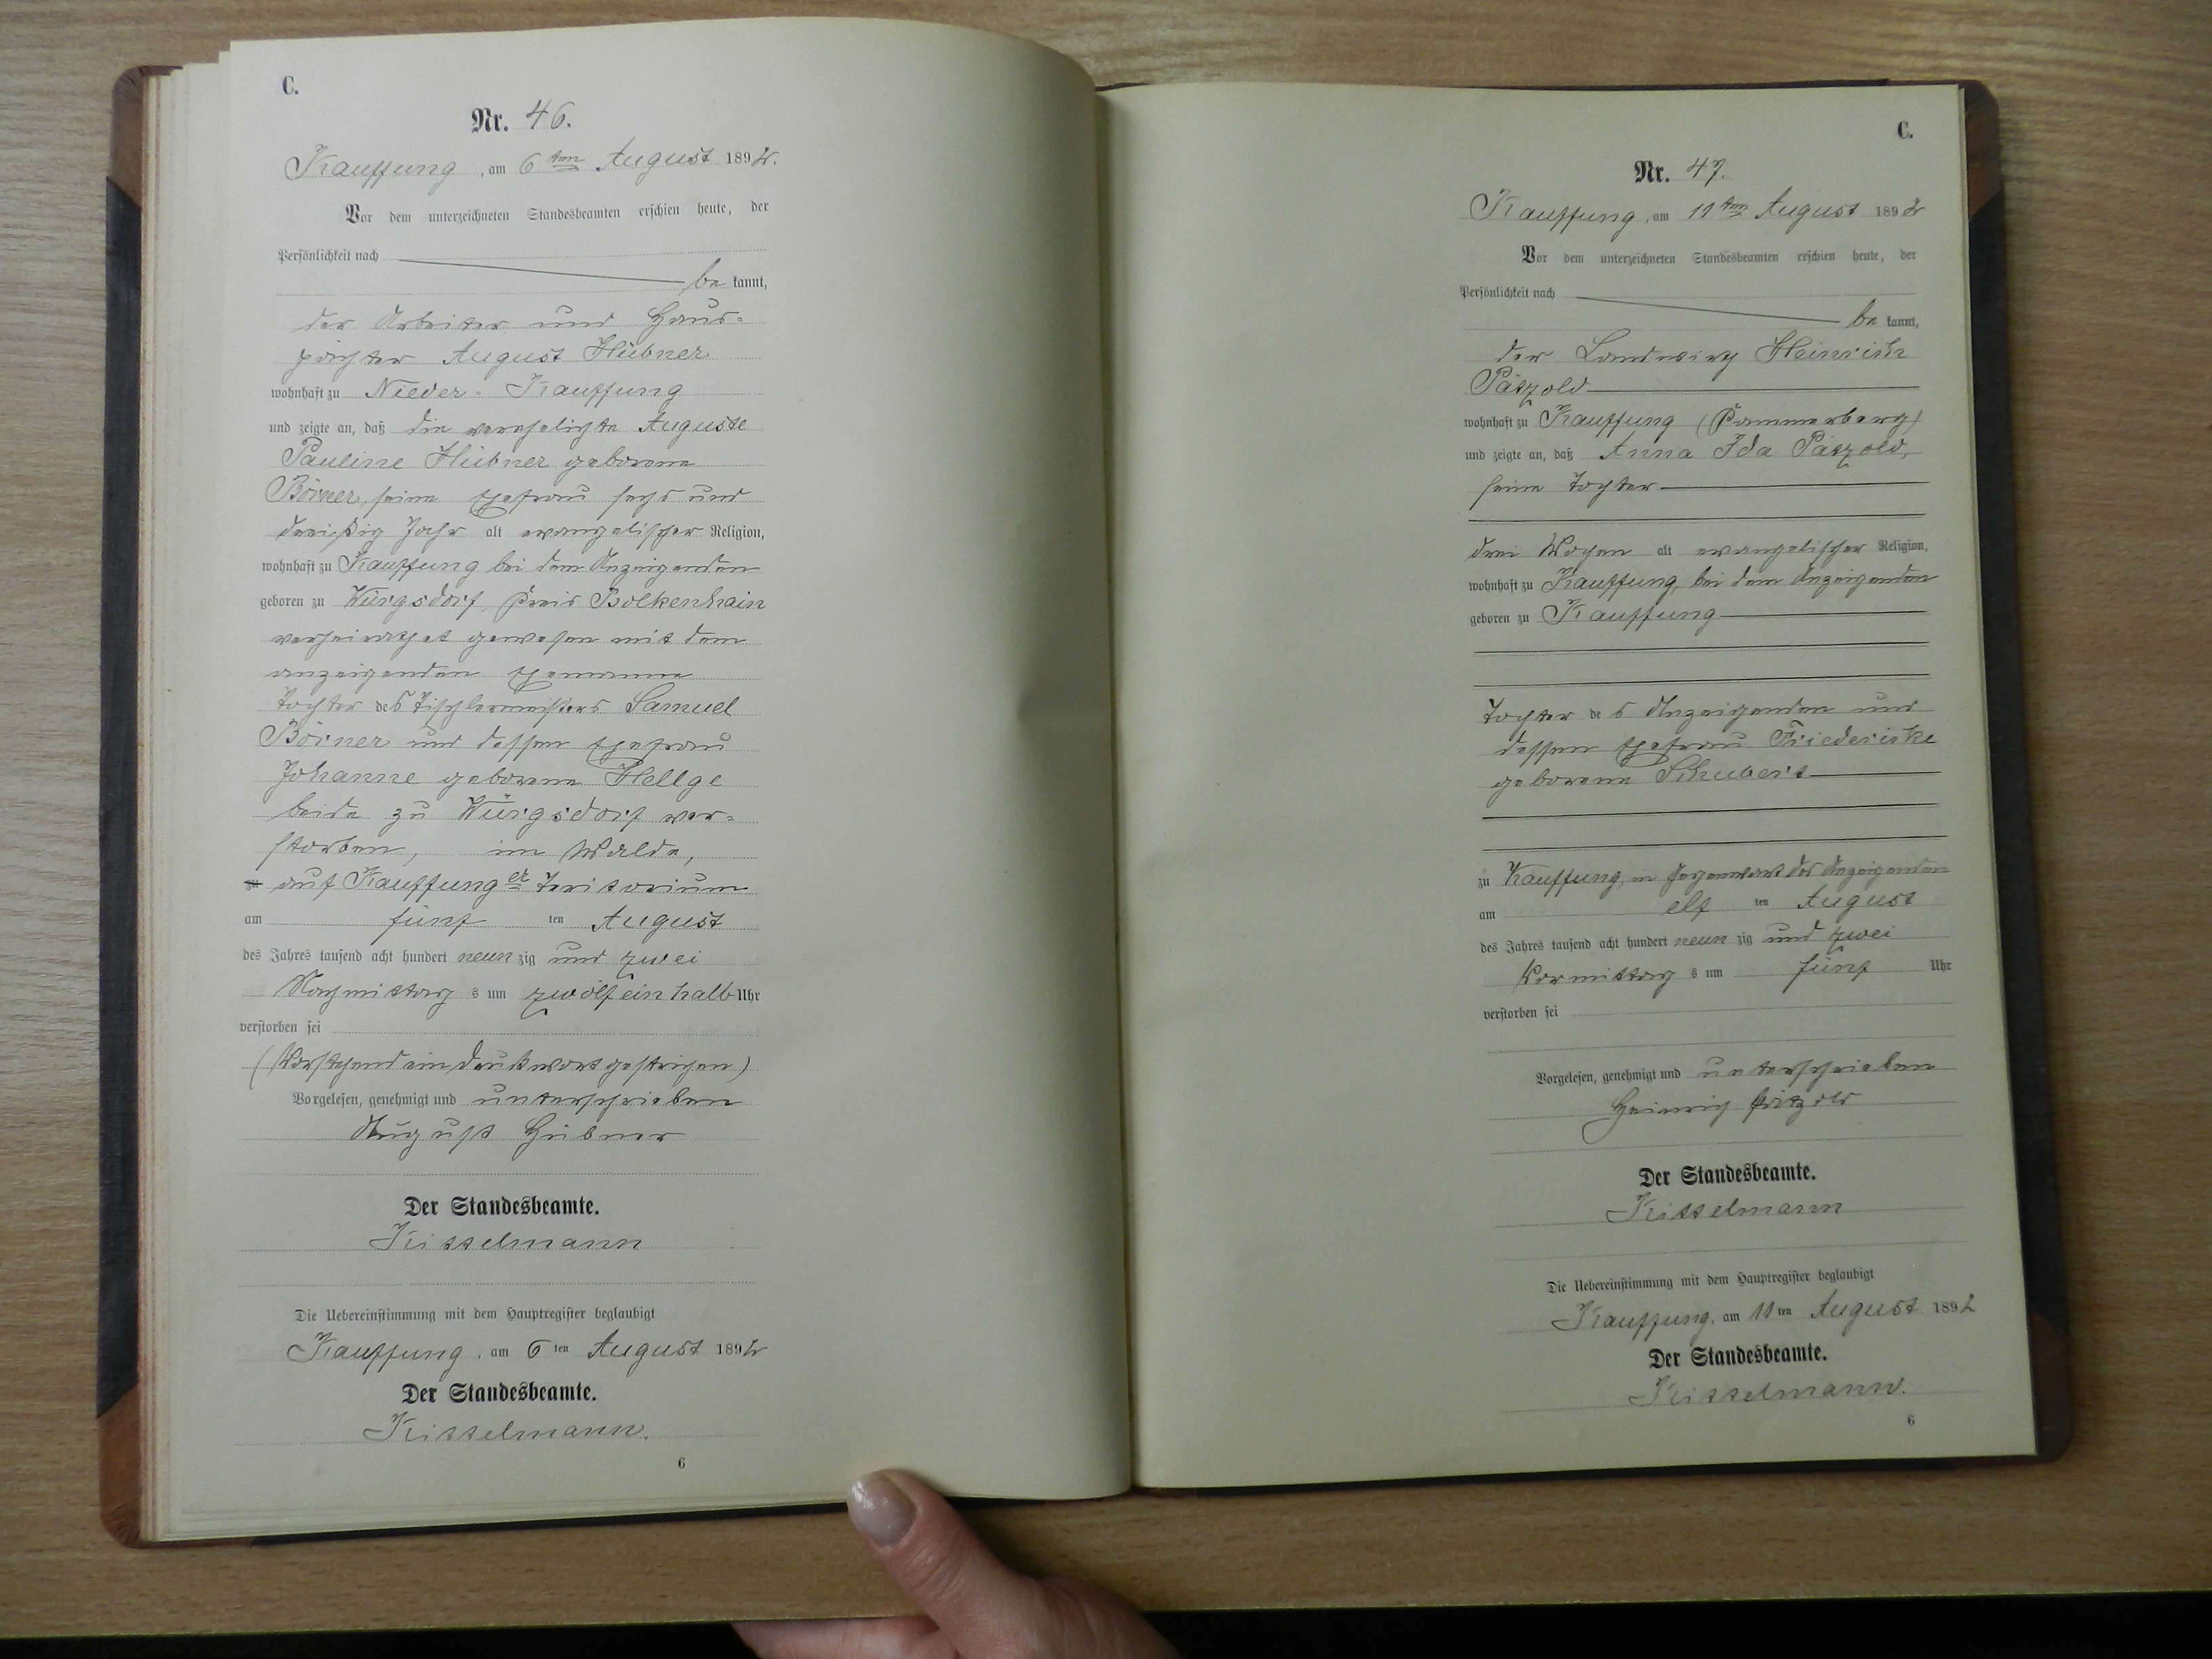 C.
Nr. 46.
Kauffung, am 6ten August 1892.
Vor dem unterzeichneten Standesbeamten erschien heute, der
Persönlichkeit nach
be kannt,
der Arbeiter und Haus-
pächter August Hübner
wohnhaft zu Nieder-Kauffung
und zeigte an, daß die verehelichte Auguste
Pauline Hübner geborene
Börner, seine Ehefrau sechs und
dreißig Jahr alt evangelischer Religion,
wohnhaft zu Kauffung bei dem Anzeigenden
geboren zu Würgsdorf, Kreis Bolkenhain
verheirathet gewesen mit dem
anzeigenden Ehemanne
Tochter des Tischlermeisters Samuel
Börner und dessen Ehefrau
Johanne geborene Hellge
beide zu Würgsdorf ver-
storben, im Walde,
zu auf Kauffunger Teritorium
am fünf ten August
des Jahres tausend acht hundert neun zig und zwei
Nachmittag s um zwölfeinhalb Uhr
verstorben sei
(Vorstehend ein Druckwort gestrichen)
Vorgelesen, genehmigt und unterschrieben
August Hübner
Der Standesbeamte.
Kisselmann
Die Uebereinstimmung mit dem Hauptregister beglaubigt
Kauffung, am 6 ten August 1892
Der Standesbeamte.
Kisselmann.
6
C.
Nr. 47.
Kauffung, am 11ten August 1892
Vor dem unterzeichneten Standesbeamten erschien heute, der
Persönlichkeit nach
be kannt,
der Landwirth Heinrich
Pätzold
wohnhaft zu Kauffung (Pommerberg)
und zeigte an, daß Anna Ida Pätzold,
seine Tochter
drei Wochen alt evangelischer Religion,
wohnhaft zu Kauffung, bei dem Anzeigenden
geboren zu Kauffung
Tochter des Anzeigenden und
dessen Ehefrau Friederike
geborene Schubert
zu Kauffung, in Gegenwart des Anzeigenden
am elf ten August
des Jahres tausend acht hundert neun zig und zwei
Vormittag s um fünf Uhr
verstorben sei
Vorgelesen, genehmigt und unterschrieben
Heinrich Pätzold
Der Standesbeamte.
Kisselmann
Die Uebereinstimmung mit dem Hauptregister beglaubigt
Kauffung, am 11 ten August 1892
Der Standesbeamte.
Kisselmann.
6